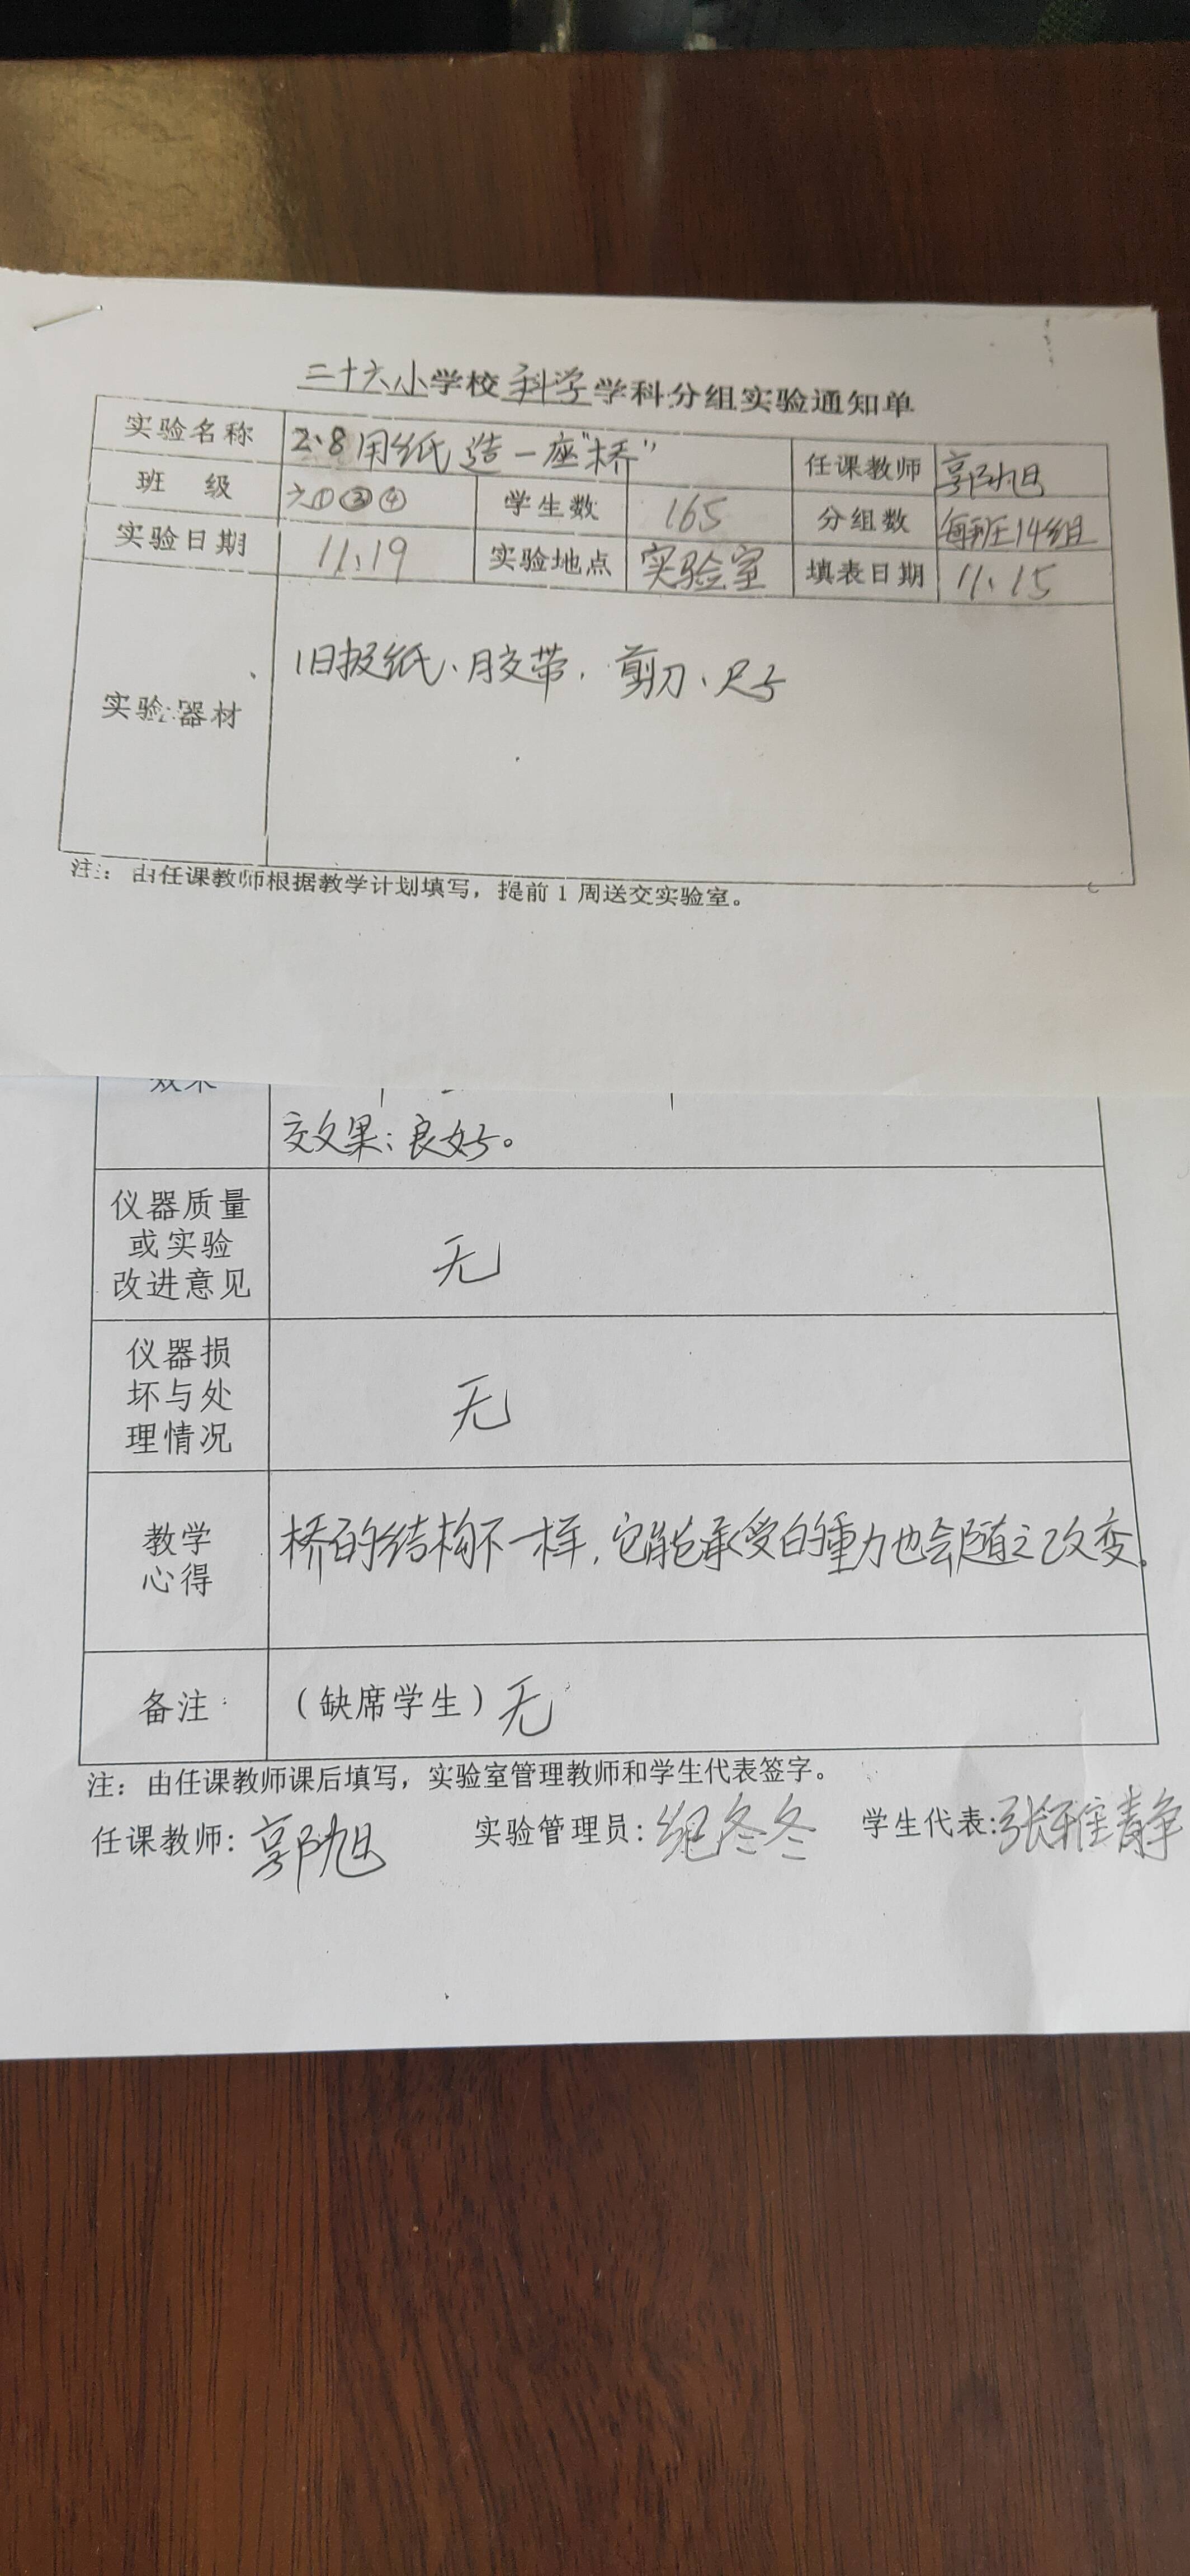 二十六小学校科学学科分组实验通知单
实验名称 2.8用纸造一座“桥” 任课教师 郭旭
班 级 六①③④ 学生数 165 分组数 每班14组
实验日期 11.19 实验地点 实验室 填表日期 11.15
实验器材 旧报纸、胶带、剪刀、尺子
注：由任课教师根据教学计划填写，提前1周送交实验室。
效果
效果：良好。
仪器质量
或实验
改进意见
无
仪器损
坏与处
理情况
无
教学
心得
桥的结构不一样，它能承受的重力也会随之改变。
备注 （缺席学生）无
注：由任课教师课后填写，实验室管理教师和学生代表签字。
任课教师：郭旭 实验管理员：冬冬 学生代表：张雅静